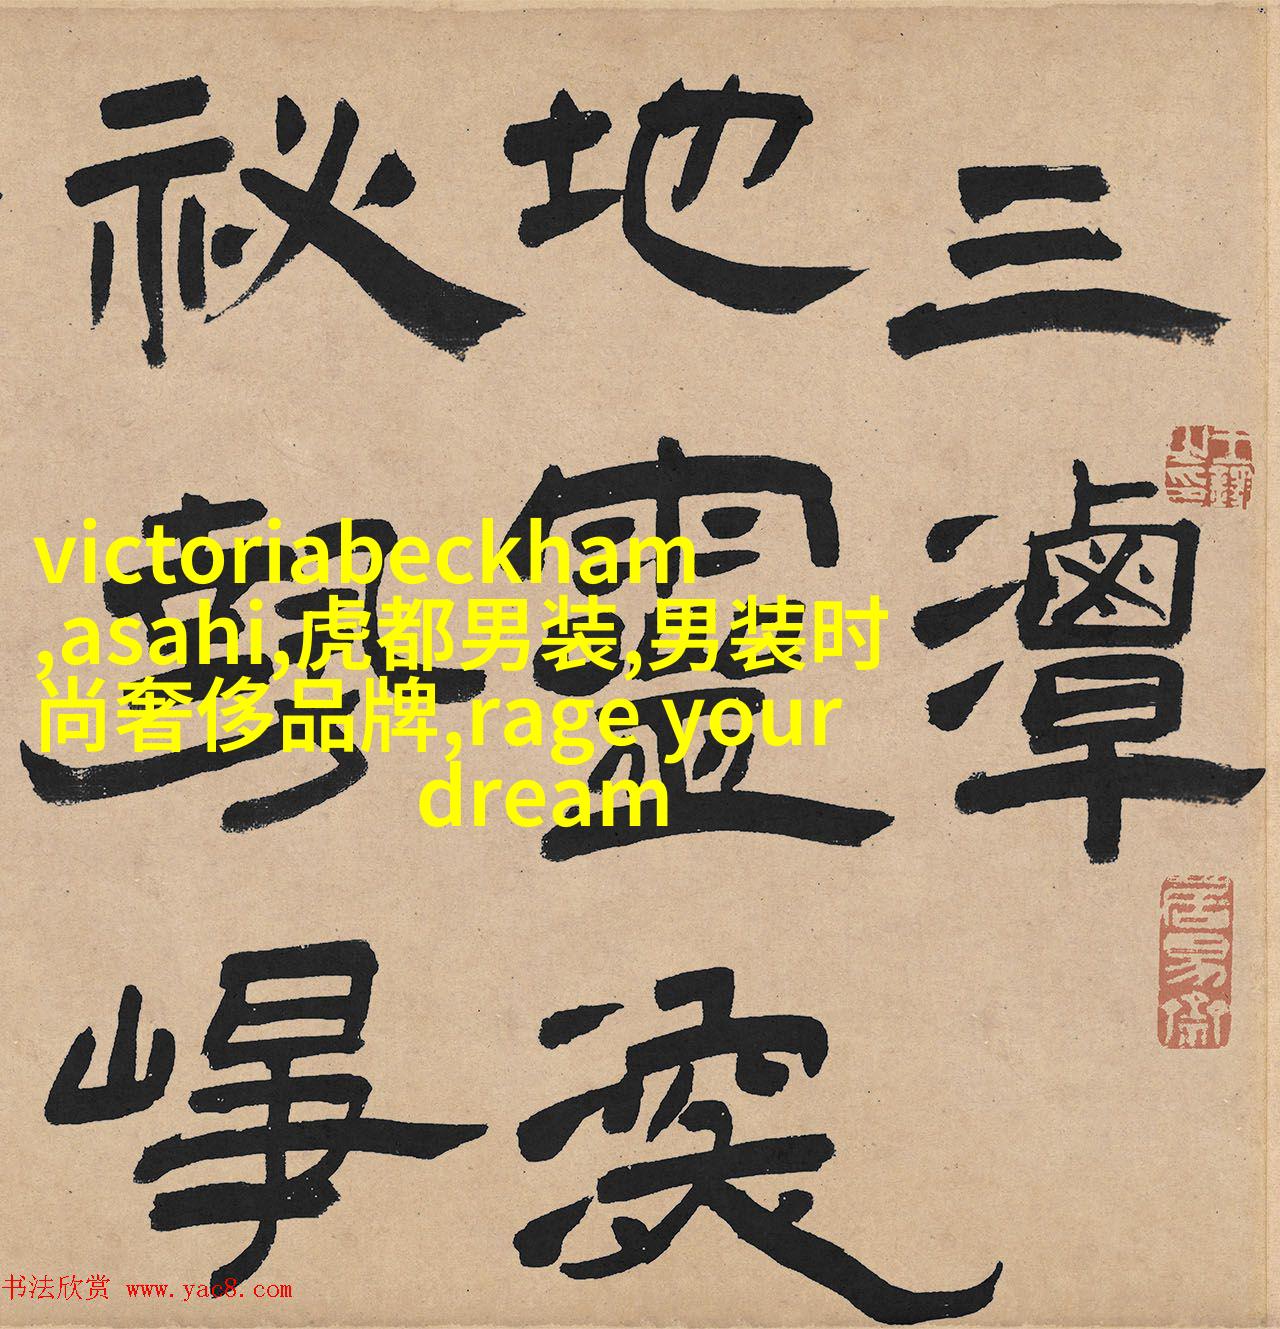 三潭
地靈
祕
victoriabeckham
,asahi,虎都男装,男装时
尚奢侈品牌,rage your
dream
书法欣赏 www.yac8.com